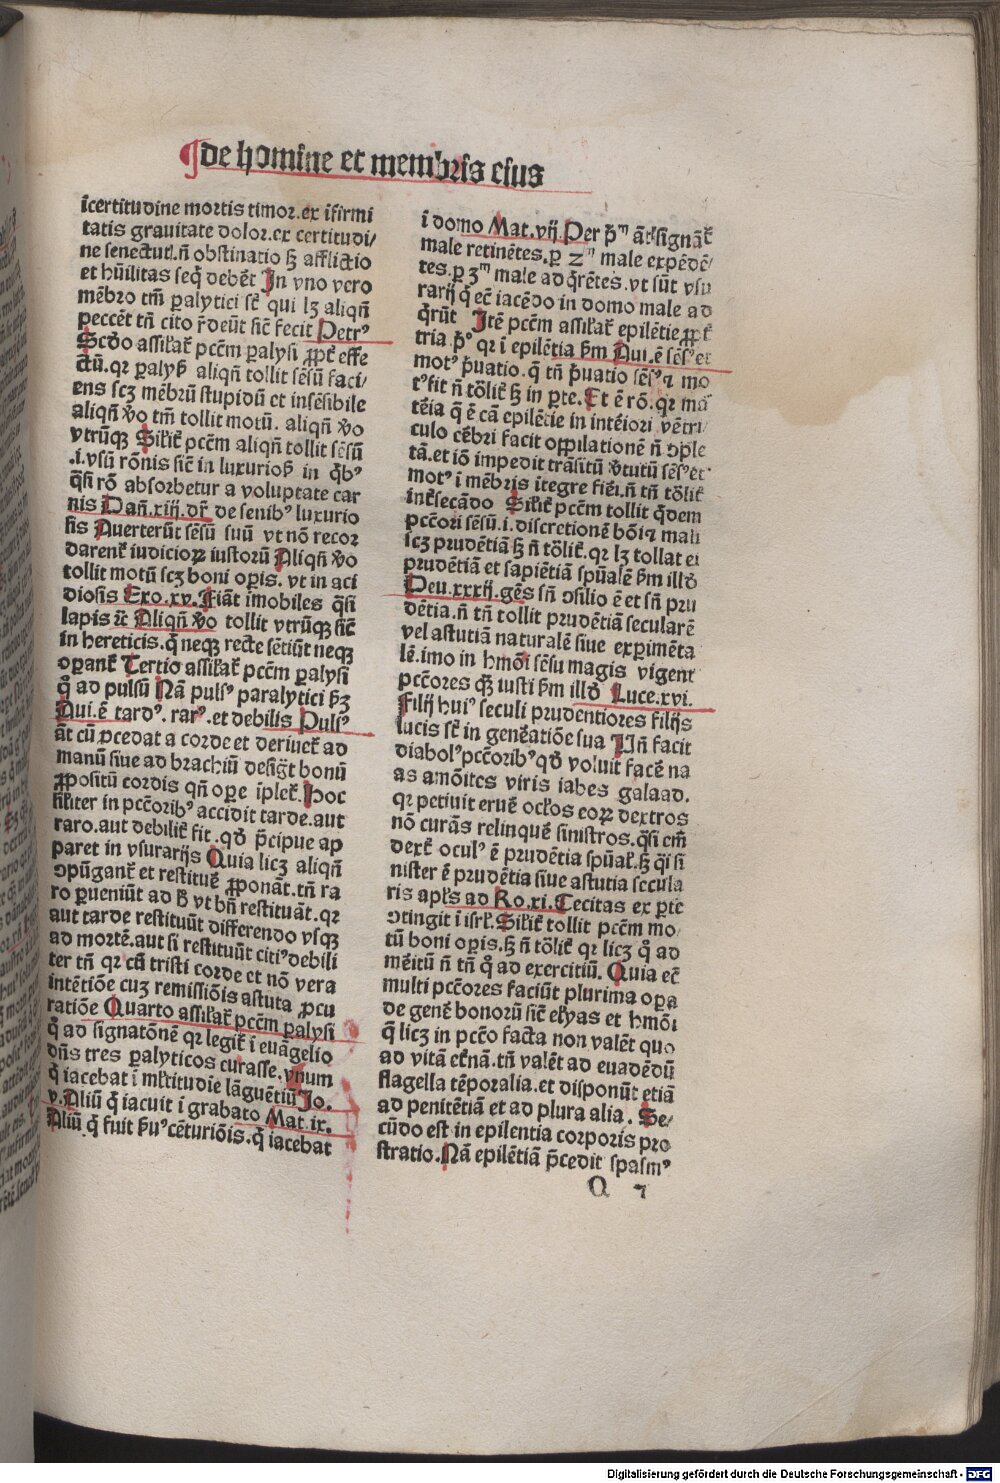 ¶ de homine et membris eius
īcertitudine mortis timor. ex ifirmi
tatis grauitate dolor. ex certitudi/
ne senectut̄. n̄ obstinatio sꝫ afflictio
et hūilitas seq̄ debēt In vno vero
mēbro tm̄ ꝑalytici st̄ qui lꝫ aliqn̄
peccēt tn̄ cito r̄deūt sic̄ fecit Petrꝰ
Scd̄o assil̄at̄ pctm̄ ꝑalysi ꝓpt̄ effe
ctū. qꝛ ꝑalyẜ aliqn̄ tollit sēsū faci/
ens scꝫ mēbrū stupidū et insēsibile
aliqn̄ v̄o tm̄ tollit motū. aliqn̄ v̄o
vtrūqꝫ Sil̄it̄ pctm̄ aliqn̄ tollit sēsū
.i. vsū rōnis sic̄ in luxurioẜ in q̄bꝰ
q̄si rō absorbetur a voluptate car
nis Dan̄. xiij. dr̄ de senibꝰ luxurio
sis Auerterūt sēsū suū vt nō recor
darent̄ iudicioꝝ iustorū Aliqn̄ v̄o
tollit motū scꝫ boni oꝑis. vt in aci
diosis Exo. xv. Fiāt imobiles q̄si
lapis ⁊c̄ Aliqn̄ v̄o tollit vtrūqꝫ sic̄
in hereticis. q̄ neqꝫ recte sētiūt neqꝫ
oꝑant̄ Tertio assil̄at̄ pctm̄ ꝑalysi
q̊ ad pulsū Nā pulsꝰ paralytici ẜꝫ
Aui. ē tardꝰ. rarꝰ. et debilis Pulsꝰ
āt cū ꝓcedat a corde et deriuet̄ ad
manū siue ad brachiū desigt̄ bonū
ꝓpositū cordis qn̄ oꝑe īplet̄. Hoc
sil̄iter in pctōribꝰ accidit tarde. aut
raro. aut debilit̄ fit. qd̄ p̄cipue ap
paret in vsurarijs Quia licꝫ aliqn̄
ꝯpūgant̄ et restituē̄ ꝓponāt. tn̄ ra
ro ꝑueniūt ad ẜ vt bn̄ restituāt. qꝛ
aut tarde restituūt differendo vsqꝫ
ad mortē. aut si restituūt citiꝰ debili
ter tn̄ qꝛ cū tristi corde et nō vera
intētiōe cuꝫ remissiōis astuta ꝓcu
ratiōe Quarto assil̄at̄ pctm̄ ꝑalysi
q̊ ad signatōnē qꝛ legit̄ ī euāgelio
dn̄s tres ꝑalyticos curasse. vnum
q̄ iacebat ī ml̄titudīe lāguētiū Jo.
v. Aliū q̄ iacuit ī grabato Mat. ix.
Aliū q̄ fuit ẜuꝰ cēturiōis. q̄ iacebat
ī domo Mat. vij. Per p̄ᵐ āt signāt̄
male retinētes. ꝑ 2ᵐ male expēdē/
tes. ꝑ 3ᵐ male adq̄rētes. vt sūt vsu
rarij q̄ ec̄ iacēdo in domo male ad
q̄rūt Itē pctm̄ assil̄at̄ epilētie ꝓpt̄
tria p̄ꝰ qꝛ ī epilētia ẜm Aui. ē sēsꝰ et
motꝰ p̄uatio. q̄ tn̄ p̄uatio sēsꝰ ⁊ mo
tꝰ fit n̄ tōlit̄ sꝫ in ꝑte. Et ē rō. qꝛ ma
tēia q̄ ē cā epilēcie in intēiori vētri
culo cēbri facit oppilationē n̄ ꝯple
tā. et iō impedit trāsitū v̄tutū sēsꝰ et
motꝰ ī mēbris itegre fiēi. n̄ tn̄ tōlit̄
int̄secādo Sil̄it̄ pctm̄ tollit q̄dem
pctōri sēsū. i. discretionē bōi ⁊ mali
scꝫ prudētiā sꝫ n̄ tōlit̄. qꝛ lꝫ tollat ei
prudētiā et sapiētiā spūalē ẜm illd̄
Deu. xxxij. gēs sn̄ ꝯsilio ē et sn̄ pru
dētia. n̄ tn̄ tollit prudētiā secularē
vel astutiā naturalē siue exꝑimēta
lē. imo in hmōi sēsu magis vigent
pctōres qꝫ iusti ẜm illd̄ Luce. xvi.
Filij huiꝰ seculi prudentiores filijs
lucis st̄ in genēatiōe sua Un̄ facit
diabolꝰ pctōribꝰ qd̄ voluit facē̄ na
as amōites viris iabes galaad.
qꝛ petiuit eruē̄ ocl̄os eoꝝ dextros
nō curās relinquē̄ sinistros. q̄si cm̄
dext̄ oculꝰ ē prudētia spūal̄. sꝫ q̄i si
nister ē prudētia siue astutia secula
ris apl̄s ad Ro. xi. Cecitas ex ꝑte
ꝯtingit ī isrl̄. Sil̄it̄ tollit pctm̄ mo
tū boni oꝑis. sꝫ n̄ tōlit̄ qꝛ licꝫ q̊ ad
mēitū n̄ tn̄ q̊ ad exercitiū. Quia ec̄
multi pctōres faciūt plurima oꝑa
de genē bonorū sic̄ el̄yas et hmōi
q̄ licꝫ in pctō facta non valēt quo
ad vitā et̄nā. tn̄ valēt ad euadēdū
flagella tēporalia. et disponūt etiā
ad penitētiā et ad plura alia. Se/
cūdo est in epilentia corporis pro
stratio. Nā epilētiā p̄cedit spasmꝰ
Q 7
Digitalisierung gefördert durch die Deutsche Forschungsgemeinschaft - DFG